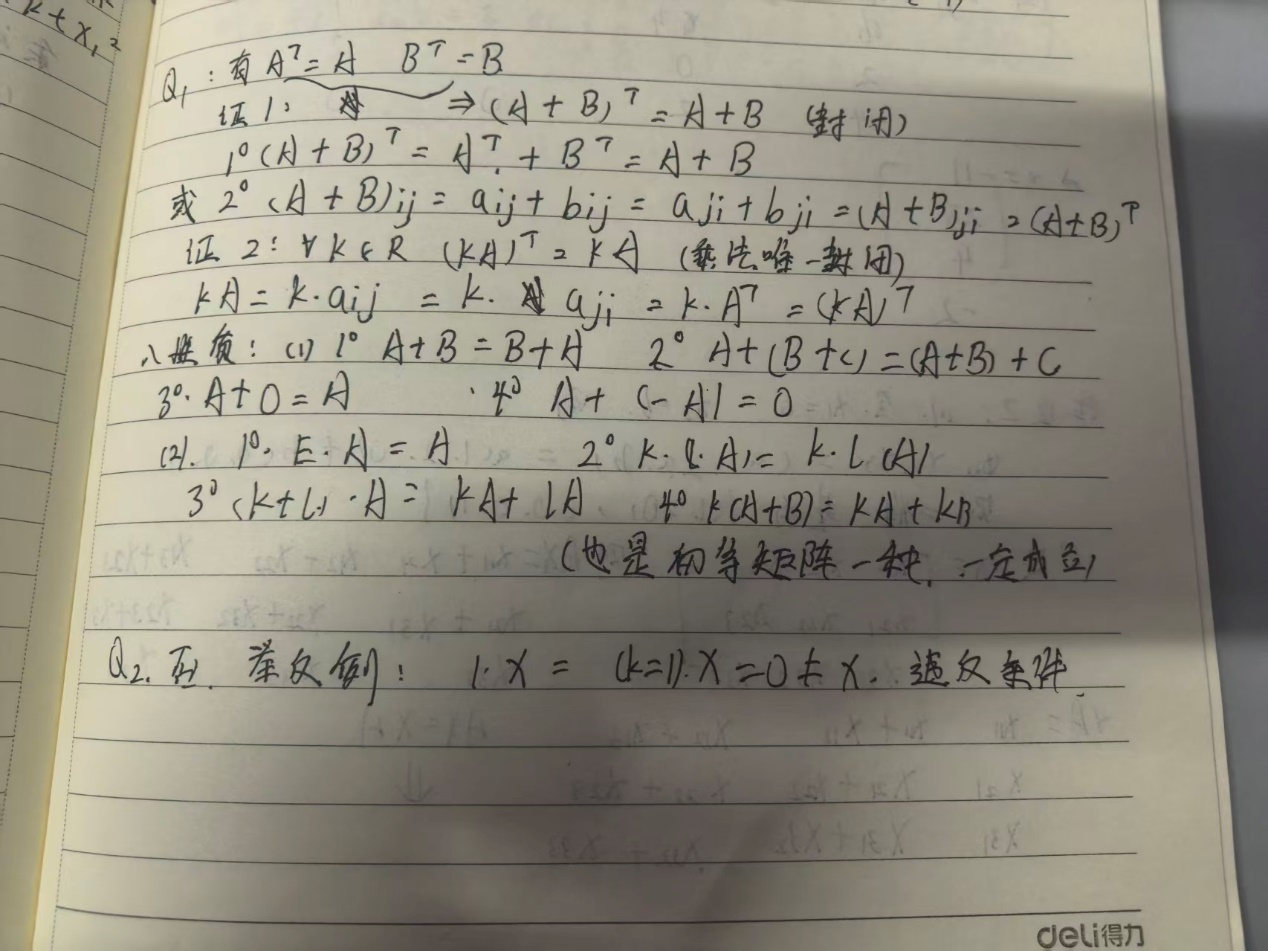 k+x₁₂
Q₁:有 Aᵀ=A Bᵀ=B
证1: ⇒(A+B)ᵀ=A+B (封闭)
1⁰(A+B)ᵀ=Aᵀ+Bᵀ=A+B
或 2⁰ (A+B)ij=aij+bij=aji+bji=(A+B)ji=(A+B)ᵀ
证2:∀k∈R (kA)ᵀ=kA (乘法唯一封闭)
kA=k·aij=k·aji=k·Aᵀ=(kA)ᵀ
八 : (1) 1⁰ A+B=B+A 2⁰ A+(B+C)=(A+B)+C
3⁰. A+0=A 4⁰ A+(-A)=0
(2). 1⁰. E·A=A 2⁰ k·(l·A)=k·l(A)
3⁰ (k+l)·A=kA+lA 4⁰. k(A+B)=kA+kB
(也是初等矩阵一种,一定成立)
Q₂. 否. 举反例: 1·X=(k=1)·X=0≠X. 违反条件.
deli得力